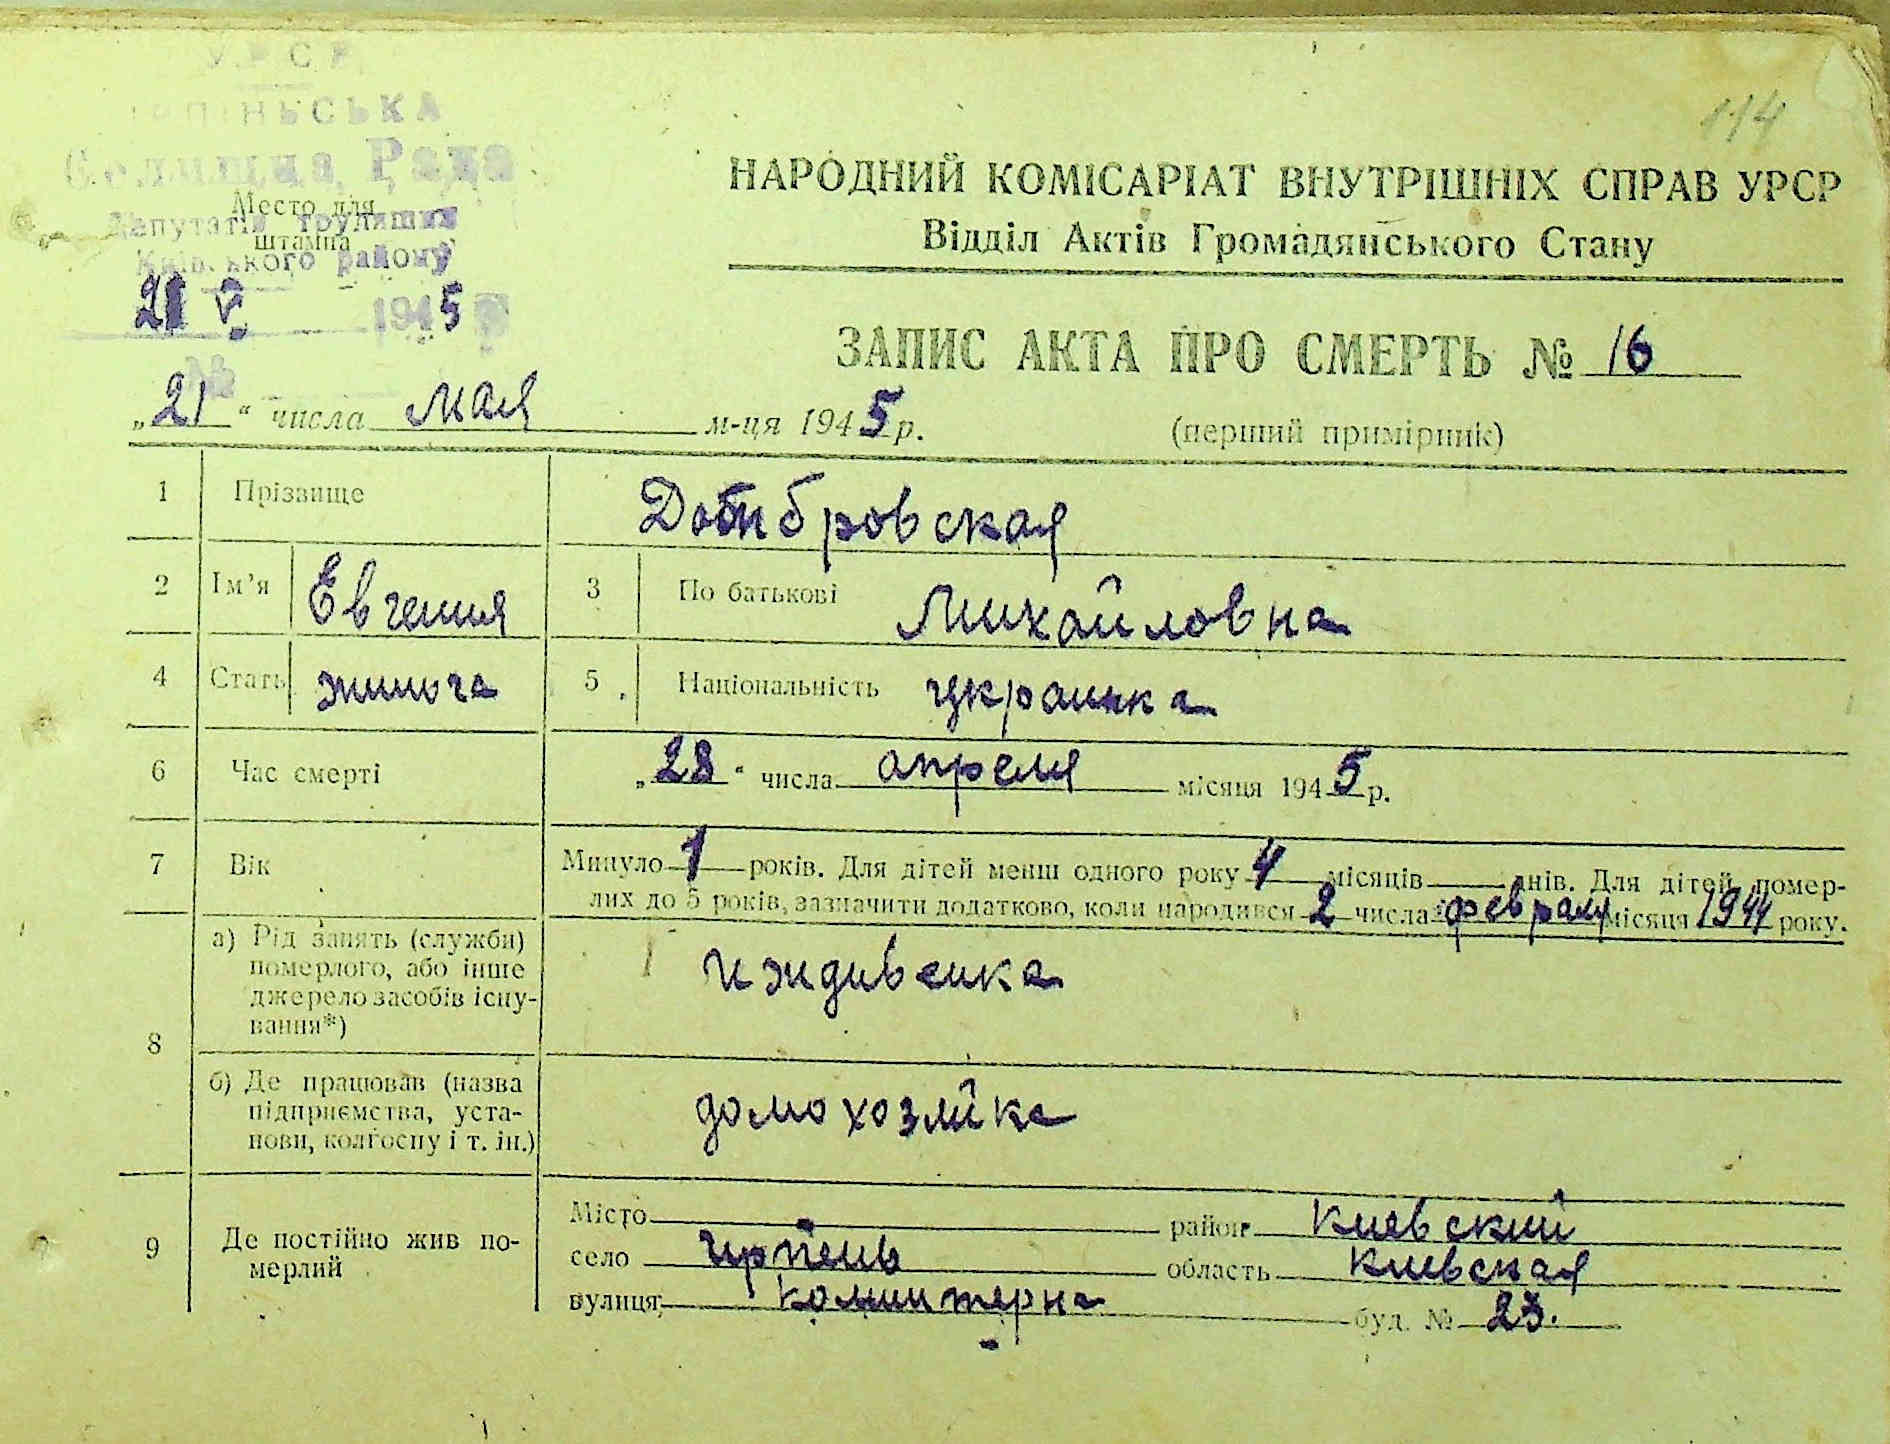 У.Р.С.Р.
ІРПІНЬСЬКА
Селищна Рада
Место для
Депутатів трудящих
штампа
Київського району
21 V. 1945
№
114
НАРОДНИЙ КОМІСАРІАТ ВНУТРІШНІХ СПРАВ УРСР
Відділ Актів Громадянського Стану
ЗАПИС АКТА ПРО СМЕРТЬ № 16
„21“ числа мая м-ця 1945 р.
(перший примірник)
1 Прізвище
2 Ім’я Евгения 3 По батькові Михайловна
4 Стать жиноча 5 Національність украинка
6 Час смерті „28“ числа апреля місяця 1945 р.
7 Вік Минуло 1 років. Для дітей менш одного року 4 місяців днів. Для дітей помер-
лих до 5 років, зазначити додатково, коли народився 2 числа февраля місяця 1944 року.
8 а) Рід занять (служби)
померлого, або інше
джерело засобів існу-
вання*)
иждивенка
б) Де працював (назва
підприємства, уста-
нови, колгоспу і т. ін.)
домохозяйка
9 Де постійно жив по-
мерлий
Місто район Киевский
село Ирпень область Киевская
вулиця Коминтерна буд. № 23.